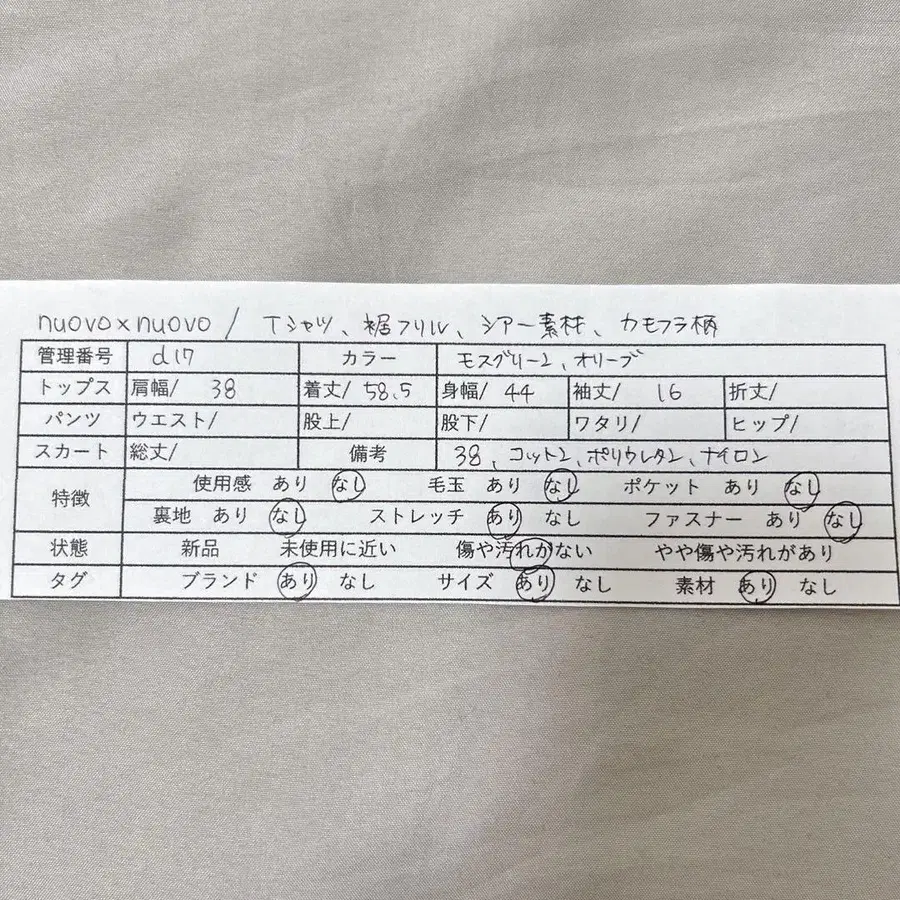 nuovo×nuovo / Tシャツ、裾フリル、シアー素材、カモフラ柄
管理番号 d17 カラー モスグリーン、オリーブ
トップス 肩幅/ 38 着丈/ 58.5 身幅/ 44 袖丈/ 16 折丈/
パンツ ウエスト/ 股上/ 股下/ ワタリ/ ヒップ/
スカート 総丈/ 備考 38、コットン、ポリウレタン、ナイロン
特徴 使用感 あり なし 毛玉 あり なし ポケット あり なし
裏地 あり なし ストレッチ あり なし ファスナー あり なし
状態 新品 未使用に近い 傷や汚れがない やや傷や汚れがあり
タグ ブランド あり なし サイズ あり なし 素材 あり なし